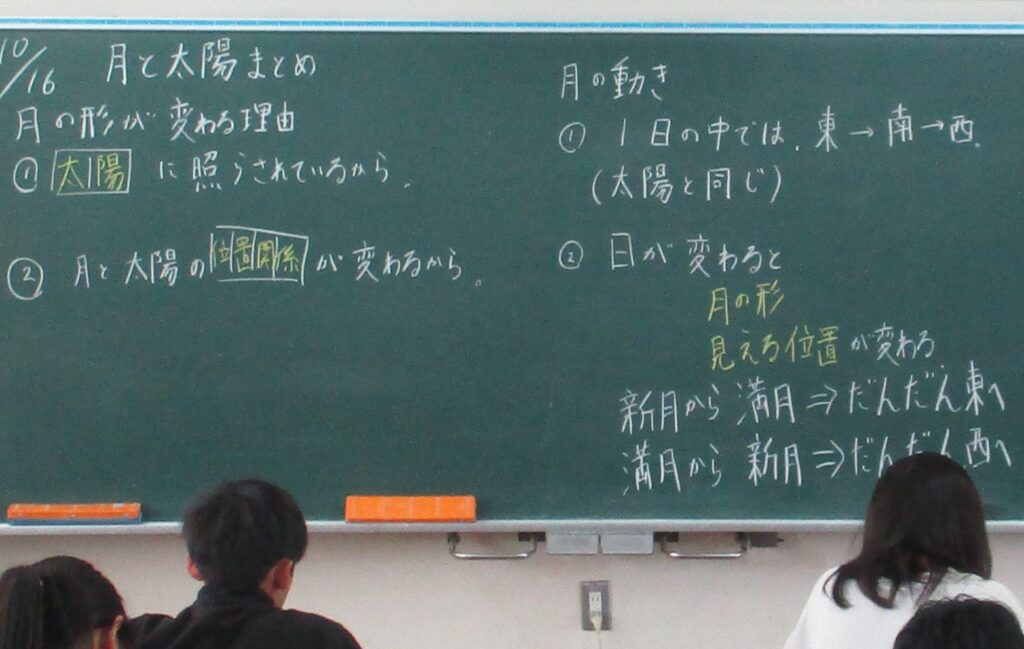 10/16 月と太陽まとめ
月の形が変わる理由
① 太陽 に照らされているから。
② 月と太陽の位置関係が変わるから。
月の動き
① 1日の中では、東→南→西。
(太陽と同じ)
② 日が変わると
月の形
見える位置が変わる
新月から満月⇒だんだん東へ
満月から新月⇒だんだん西へ